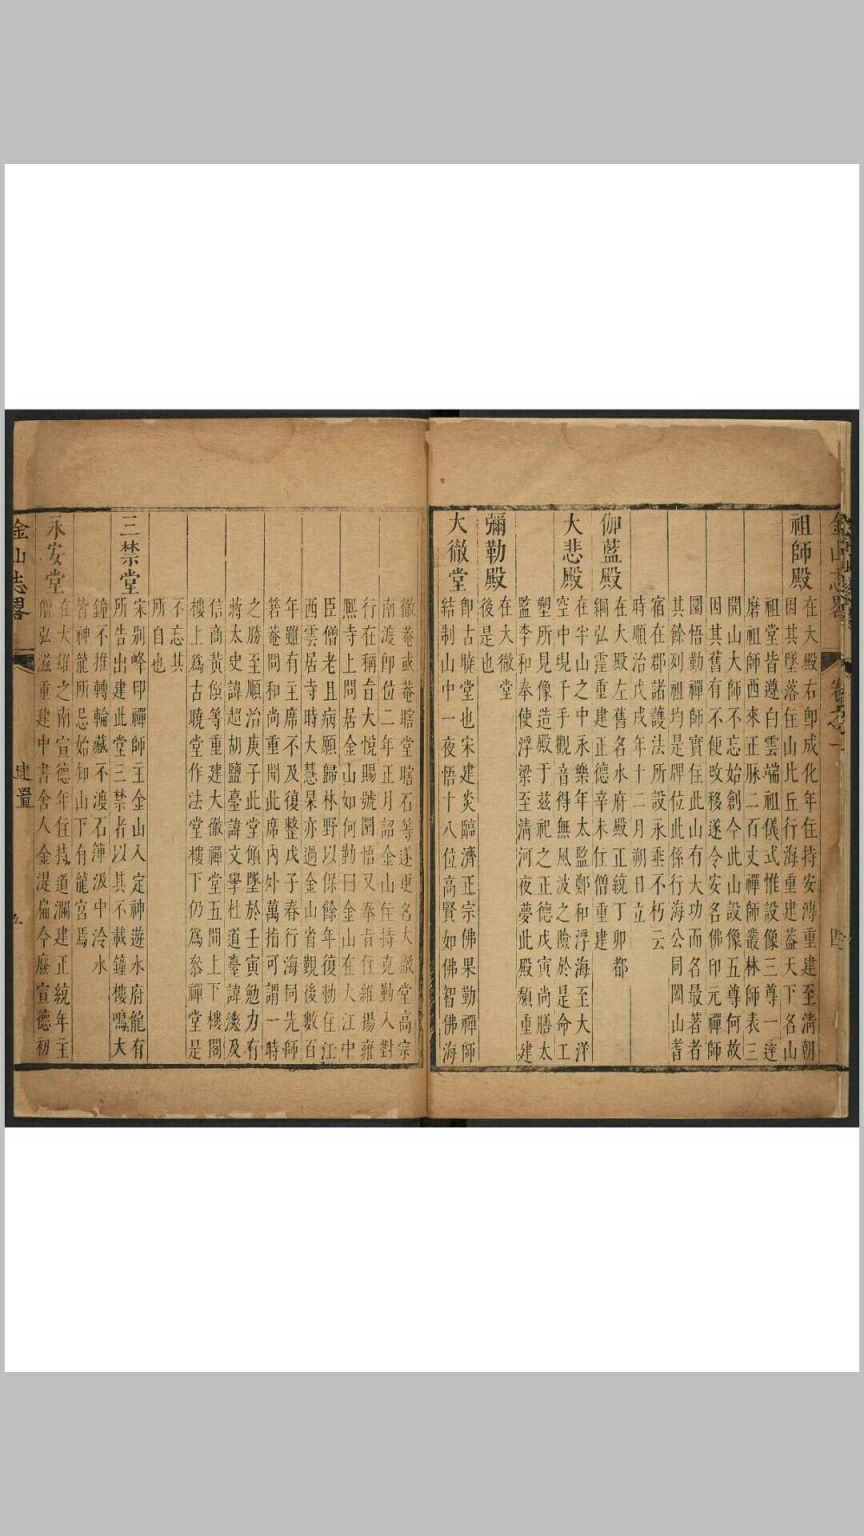 金山志畧
卷之一
四
祖師殿
在大殿右卽成化年住持安溥重建至清朝
因其墜落住山比丘行海重建葢天下名山
祖堂皆遵白雲端祖儀式惟設像三尊一達
磨祖師西來正脉二百丈禪師叢林師表三
開山大師不忘始創今此山設像五尊何故
因其舊有不便改移遂令安名佛印元禪師
圜悟勤禪師實住此山有大功而名最著者
其餘列祖均是牌位此係行海公同闔山耆
宿在郡諸護法所設永垂不朽云
時順治戊戌年十二月朔日立
伽藍殿
在大殿左舊名水府殿正統丁卯都
綱弘霔重建正德辛未住僧重建
大悲殿
在半山之中永樂年太監鄭和浮海至大洋
空中現千手觀音得無風波之險於是命工
塑所見像造殿于茲祀之正德戊寅尚膳太
監李和奉使浮梁至清河夜夢此殿頽重建
彌勒殿
在大徹堂
後是也
大徹堂
卽古曉堂也宋建炎臨濟正宗佛果勤禪師
結制山中一夜悟十八位高賢如佛智佛海
徹菴或菴瞎堂瞎石等遂更名大徹堂高宗
南渡卽位二年正月詔金山住持克勤入對
行在稱旨大悅賜號圜悟又奉旨住維揚雍
熈寺上問居金山如何勤曰金山在大江中
臣僧老且病願歸林野以保餘年復勅住江
西雲居寺時大慧杲亦過金山省觀後數百
年雖有主席不及復整戊子春行海同先師
箬菴問和尚重開此席内外萬指可謂一時
之勝至順治庚子此堂傾墜於壬寅勉力有
蔣太史諱超胡鹽臺諱文學杜道臺諱漺及
信商黃僋等重建大徹禪堂五間上下樓閣
樓上爲古曉堂作法堂樓下仍爲叅禪堂是
不忘其
所自也
三禁堂
宋别峰印禪師主金山入定神遊水府龍有
所告出建此堂三禁者以其不載鐘樓鳴大
鐘不推轉輪藏不渡石簰汲中泠水
皆神龍所忌始知山下有龍宮焉
永安堂
在大雄之南宣德年住持道瀾建正統年主
僧弘滋重建中書舍人金湜扁今廢宣德初
金山志畧
建置
五